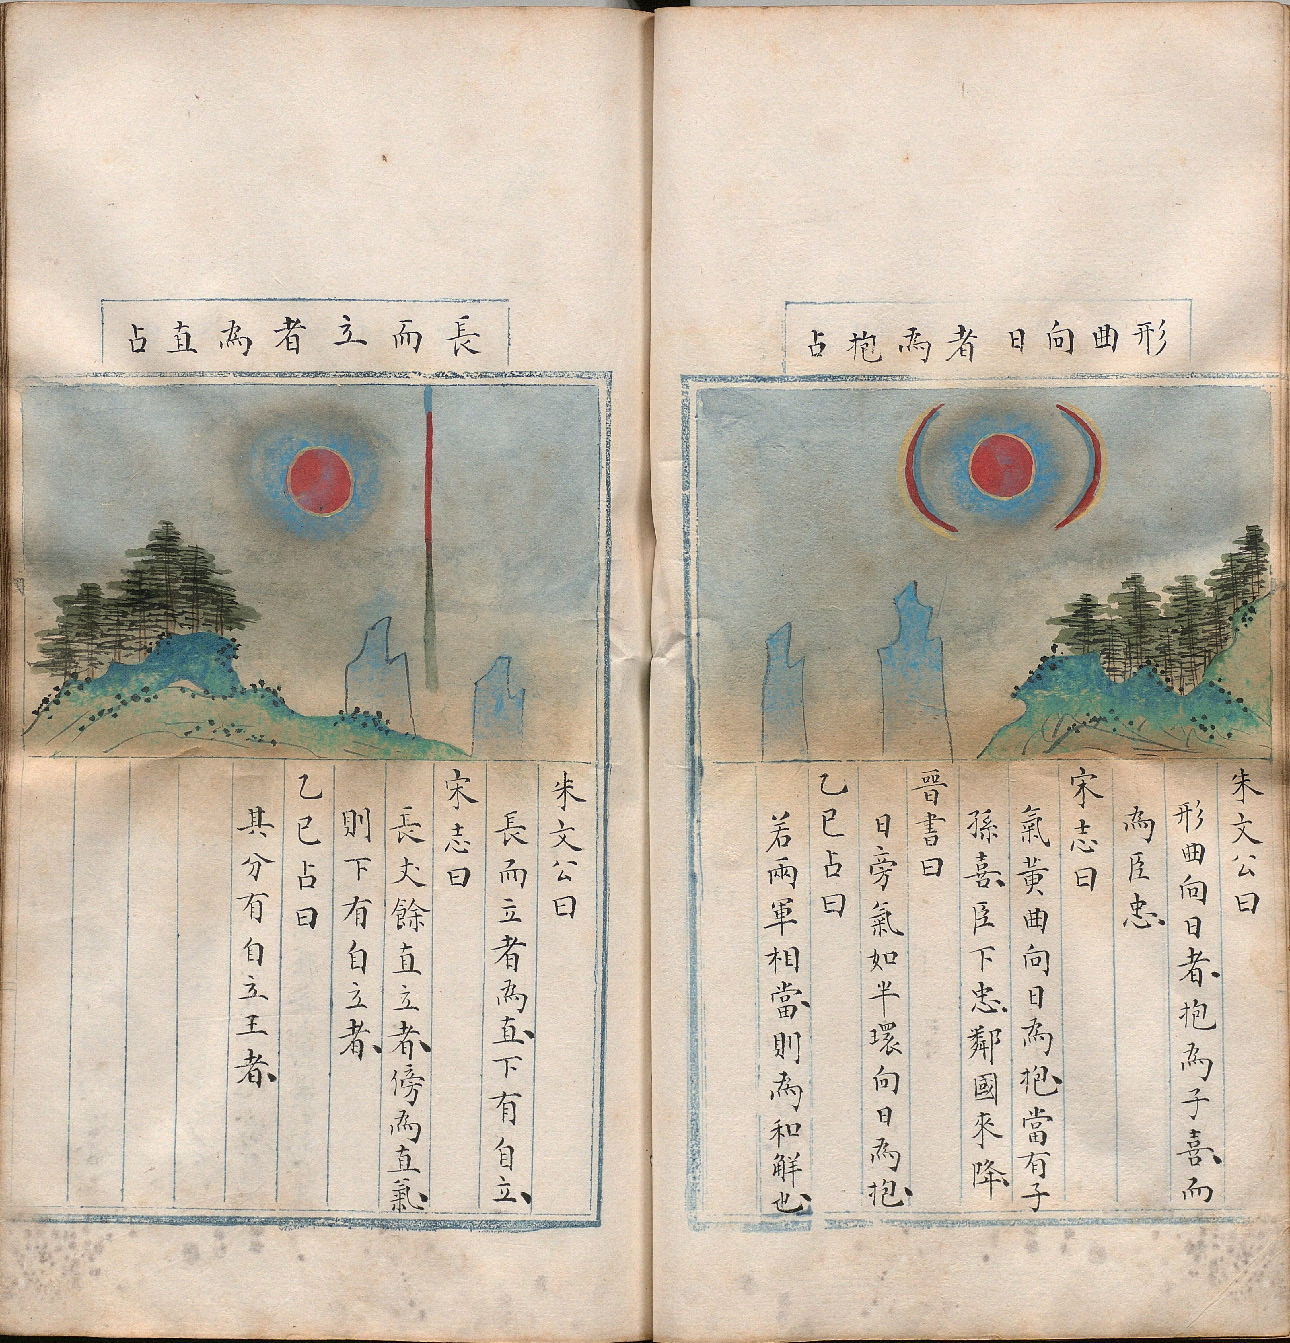 形曲向日者為抱占
朱文公曰
形曲向日者抱為子喜而
為臣忠
宋志曰
氣黄曲向日為抱當有子
孫喜臣下忠鄰國來降
晉書曰
日旁氣如半環向日為抱
乙巳占曰
若兩軍相當則為和解也
長而立者為直占
朱文公曰
長而立者為直下有自立
宋志曰
長丈餘直立者傍為直氣
則下有自立者
乙巳占曰
其分有自立王者